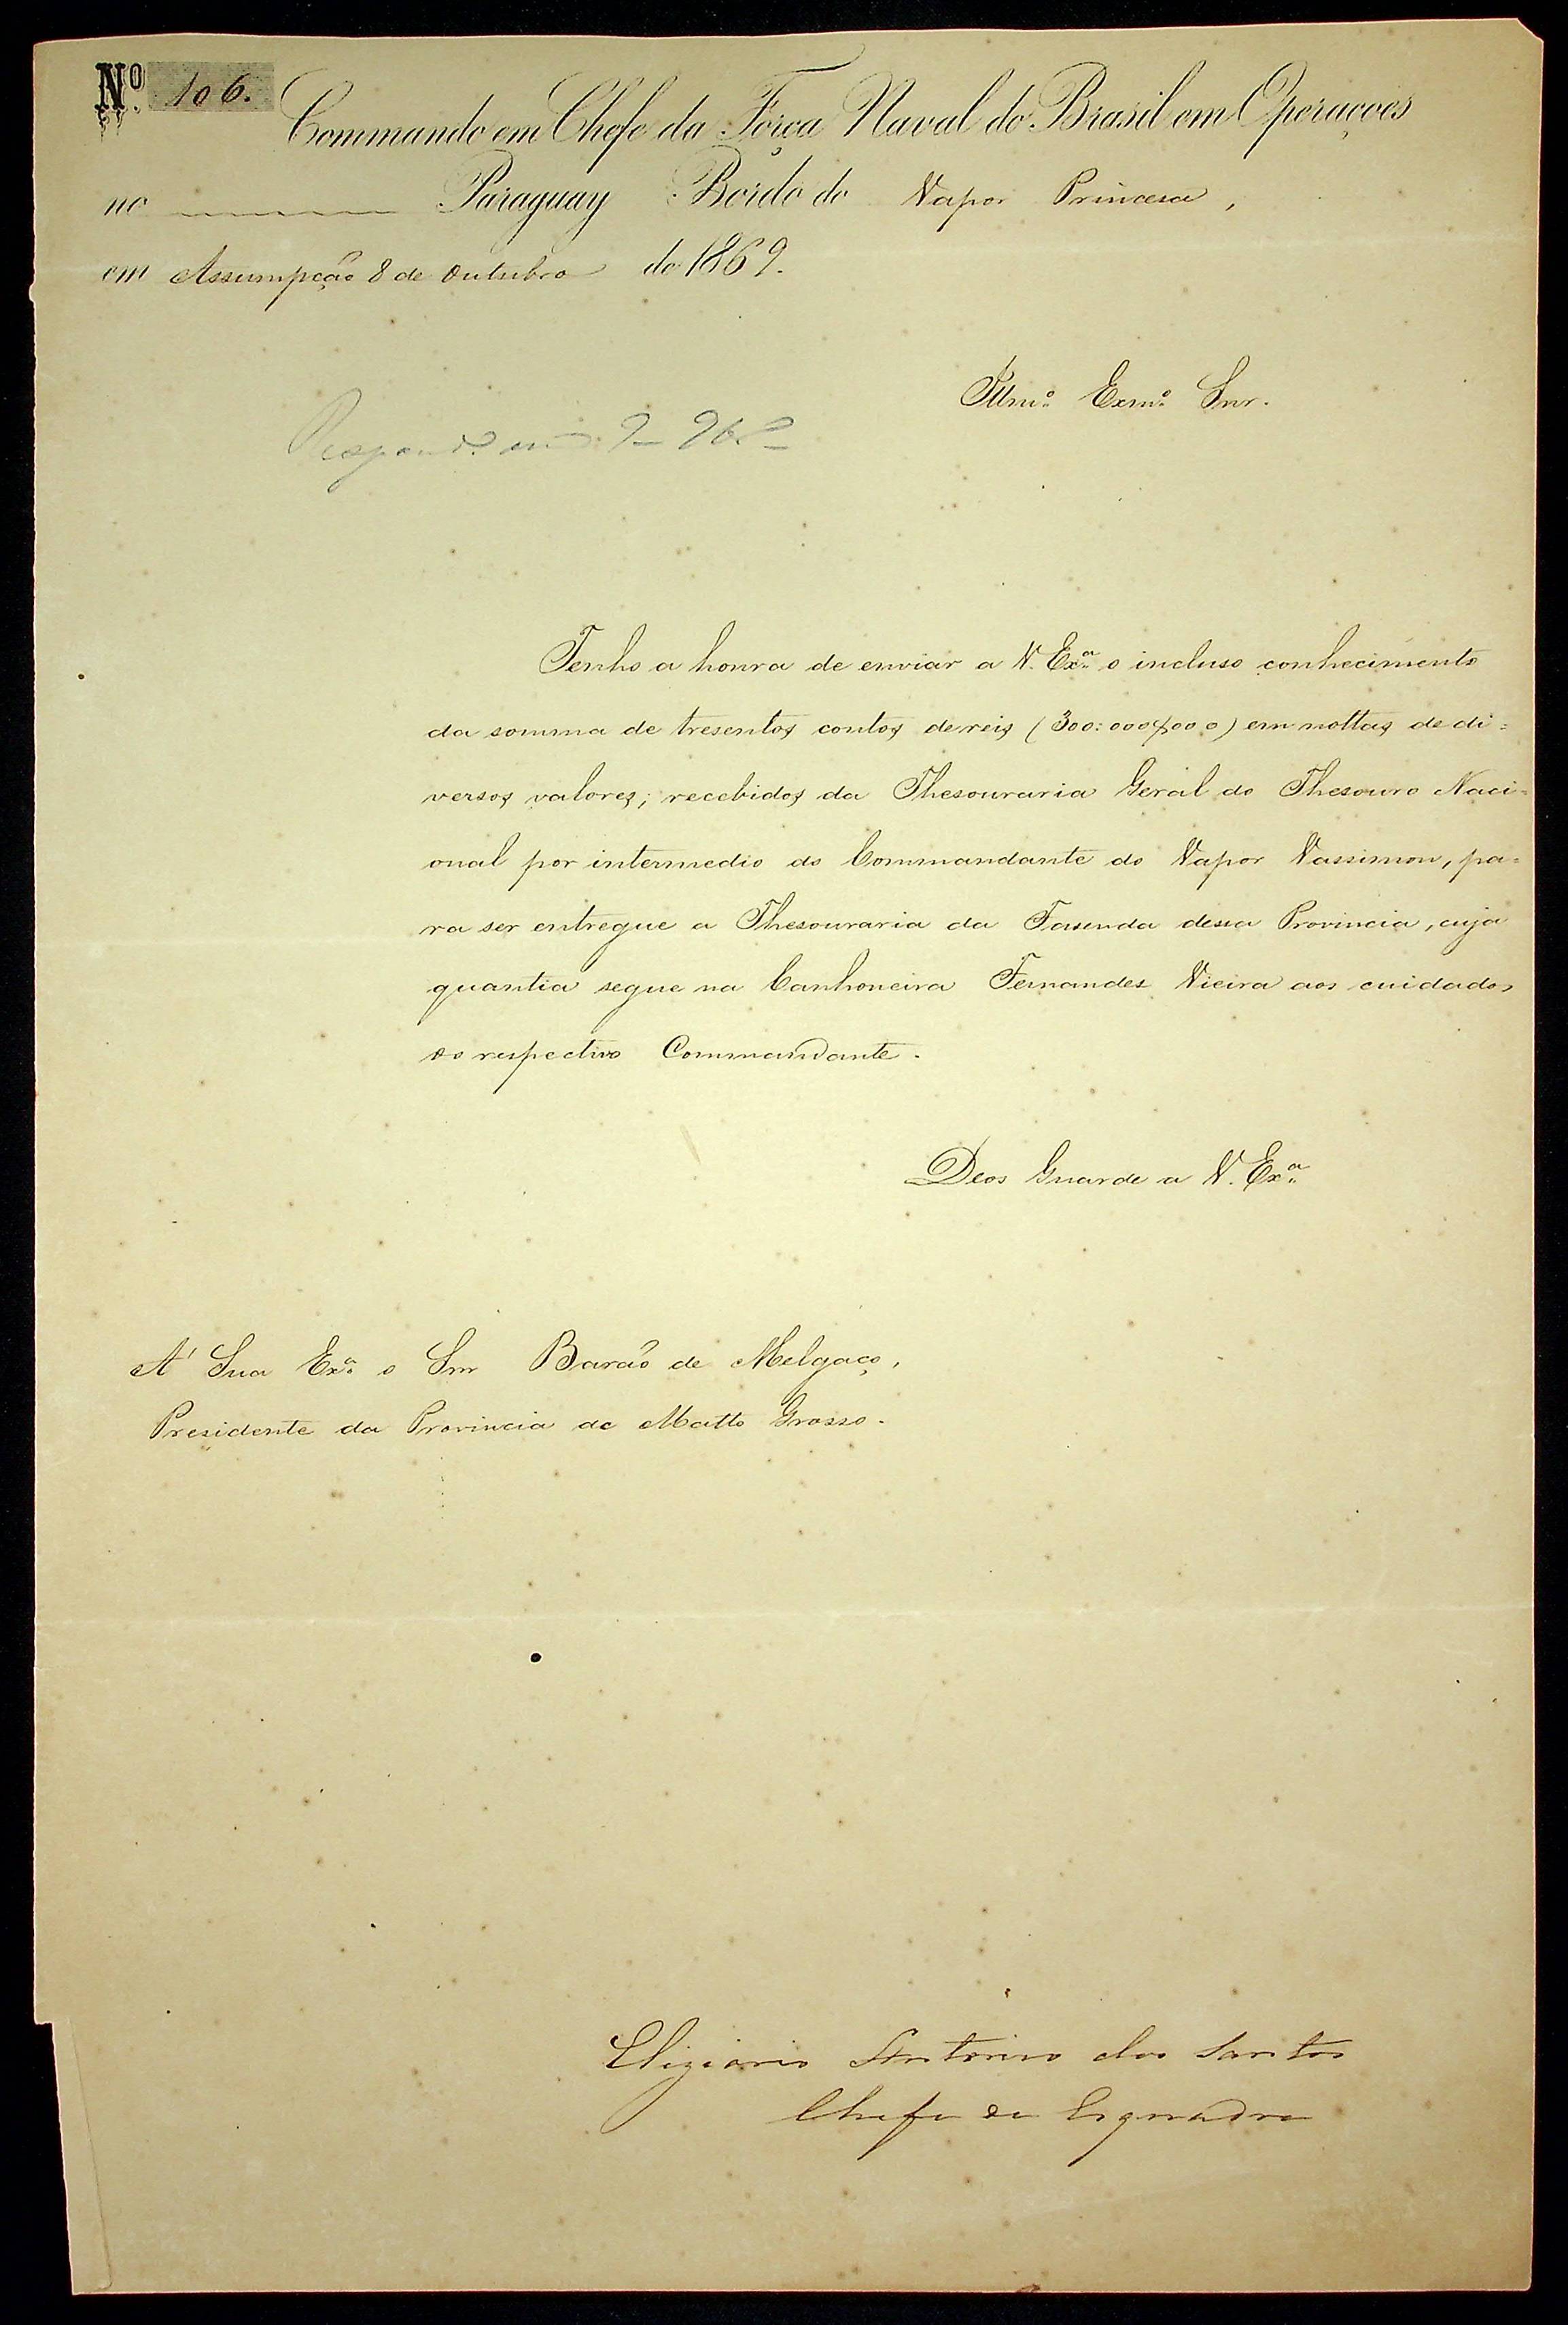 Nº 106.
Commando em Chefe da Força Naval do Brasil em Operações
no Paraguay Bordo do Vapor Princesa,
em Assumpção 8 de Outubro de 1869.
Illmº Exmº Snr.
Respond. em 9
Tenho a honra de enviar a V. Exª o incluso conhecimento
da somma de tresentos contos de reis (300:000$000) em nottas de di=
versos valores, recebidos da Thesouraria Geral do Thesouro Naci=
onal por intermedio do Commandante do Vapor Vassimon, pa=
ra ser entregue a Thesouraria da Fasenda dessa Provincia, cuja
quantia segue na Canhoneira Fernandes Vieira aos cuidados
do respectivo Commandante.
Deos Guarde a V. Exª
A' Sua Exª o Snr Barão de Melgaço,
Presidente da Provincia de Matto Grosso.
Eliziario Antonio dos Santos
Chefe de Esquadra